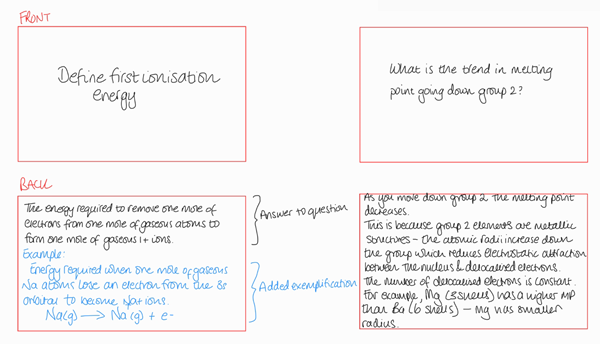 FRONT
Define first ionisation
energy
What is the trend in melting
point going down group 2?
BACK
The energy required to remove one mole of
electrons from one mole of gaseous atoms to
form one mole of gaseous 1+ ions.
Example:
Energy required when one mole of gaseous
Na atoms lose an electron from the 3s
orbital to become Na+ ions.
Na(g) → Na(g) + e-
Answer to question
Added exemplification
As you move down group 2 the melting point
decreases.
This is because group 2 elements are metallic
structures - the atomic radii increase down
the group which reduces electrostatic attraction
between the nucleus & delocalised electrons.
The number of delocalised electrons is constant.
For example, Mg (3 shells) has a higher MP
than Ba (6 shells) - Mg has smaller
radius.